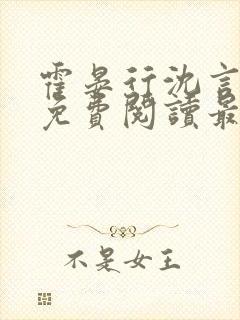 霍晏行沈言
免費閱讀最
不是女王